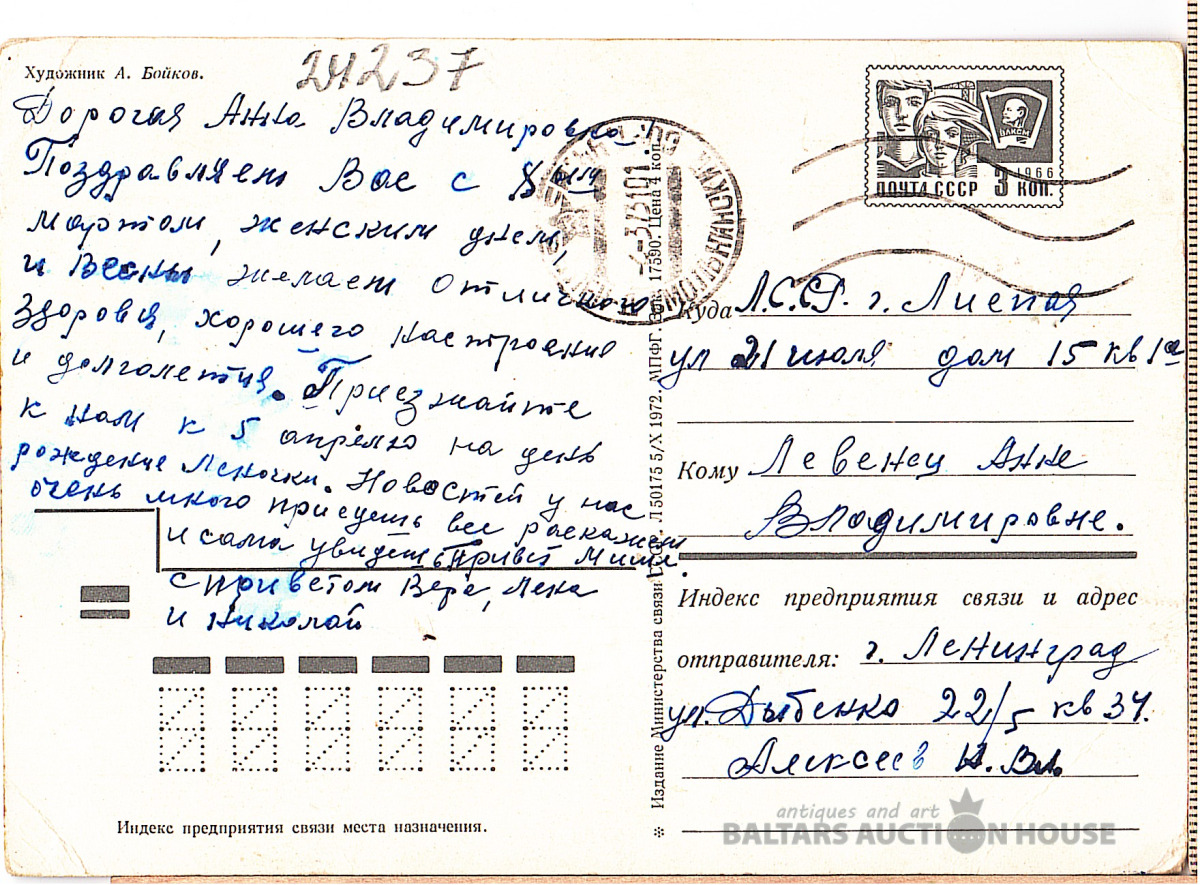 24237
Художник А. Бойков.
Дорогая Анна Владимировна.
Поздравляем Вас с 8ым
мартом, женским днем,
и Весны желаем отличного
здоровя, хорошего настроения
и долголетия. Приезжайте
к нам к 5 апрелю на день
рождение Леночки. Новостей у нас
очень много приедешь все раскажем
и сама увидешь Привет Мише.
с приветом Вера, Лена
и Николай
Индекс предприятия связи места назначения.
ВЛКСМ
1966
ПОЧТА СССР 3 КОП.
Куда Л.С.С.Р. г. Лиепая
ул 21 июля дом 15 кв 1а
Кому Левенец Анне
Владимировне.
Индекс предприятия связи и адрес
отправителя: г. Ленинград
ул. Дыбенко 22/5 кв 34.
Алексеев Н. Вл.
※ Издание Министерства связи СССР. Л 50175 5/X 1972. МПФГ. Зак. 17590. Цена 4 коп.
antiques and art
BALTARS AUCTION HOUSE